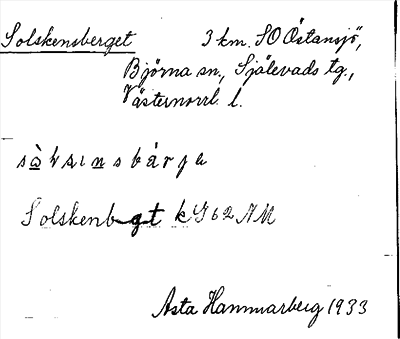 Solskensberget 3 km. SO Östansjö,
Björna sn., Själevads tg.,
Västernorrl. l.
Solskenbgt kS 62 NM
Asta Hammarberg 1933